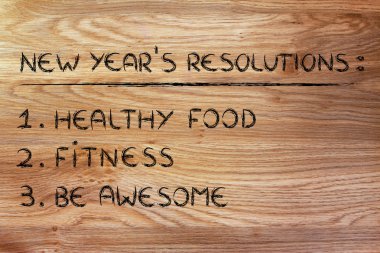 NEW YEAR'S RESOLUTIONS:
1. HEALTHY FOOD
2. FITNESS
3. BE AWESOME